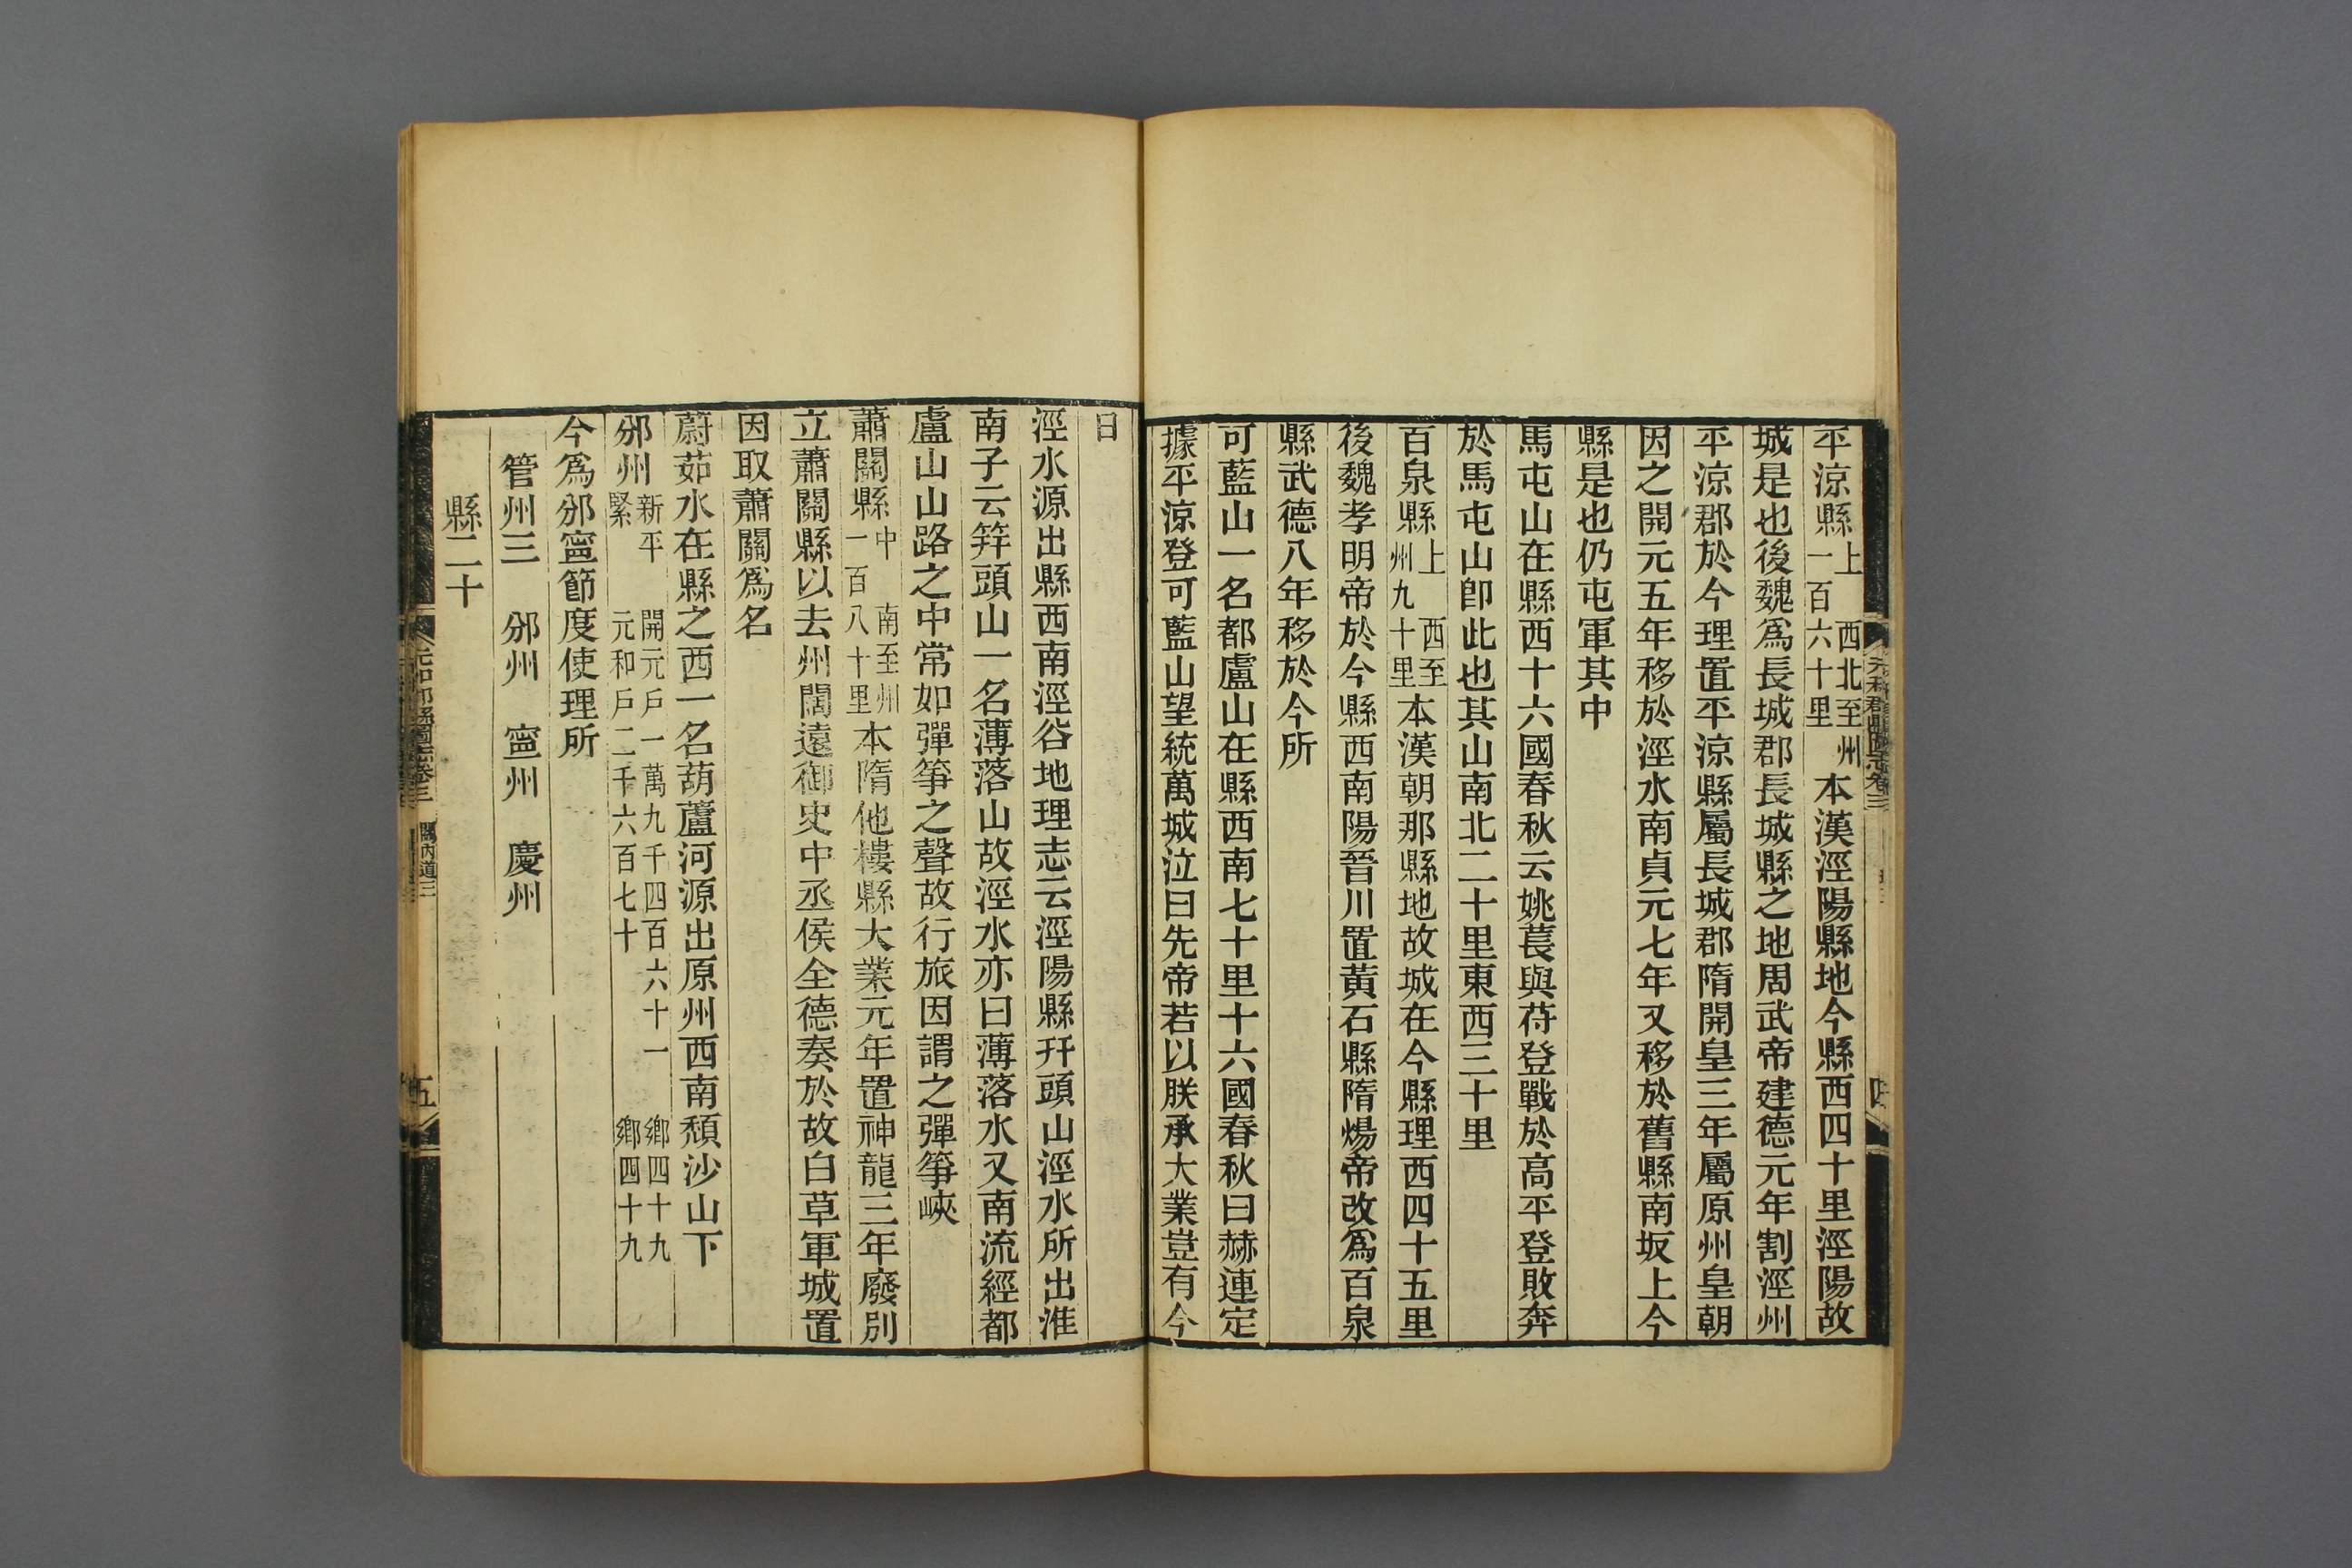 平涼縣上 西北至州一百六十里 本漢涇陽縣地今縣西四十里涇陽故
城是也後魏爲長城郡長城縣之地周武帝建德元年割涇州
平涼郡於今理置平涼縣屬長城郡隋開皇三年屬原州皇朝
因之開元五年移於涇水南貞元七年又移於舊縣南坂上今
縣是也仍屯軍其中
馬屯山在縣西十六國春秋云姚萇與苻登戰於高平登敗奔
於馬屯山卽此也其山南北二十里東西三十里
百泉縣上 西至州九十里 本漢朝那縣地故城在今縣理西四十五里
後魏孝明帝於今縣西南陽晉川置黃石縣隋煬帝改爲百泉
縣武德八年移於今所
可藍山一名都盧山在縣西南七十里十六國春秋曰赫連定
據平涼登可藍山望統萬城泣曰先帝若以朕承大業豈有今
日
涇水源出縣西南涇谷地理志云涇陽縣幵頭山涇水所出淮
南子云筓頭山一名薄落山故涇水亦曰薄落水又南流經都
盧山山路之中常如彈箏之聲故行旅因謂之彈箏峽
蕭關縣中 南至州一百八十里 本隋他樓縣大業元年置神龍三年廢別
立蕭關縣以去州闊遠御史中丞侯全德奏於故白草軍城置
因取蕭關爲名
蔚茹水在縣之西一名葫蘆河源出原州西南頹沙山下
邠州 新平 緊 開元戶一萬九千四百六十一 鄉四十九 元和戶二千六百七十 鄉四十九
今爲邠寧節度使理所
管州三 邠州 寧州 慶州
縣二十
元和郡縣圖志卷三 關內道三
五